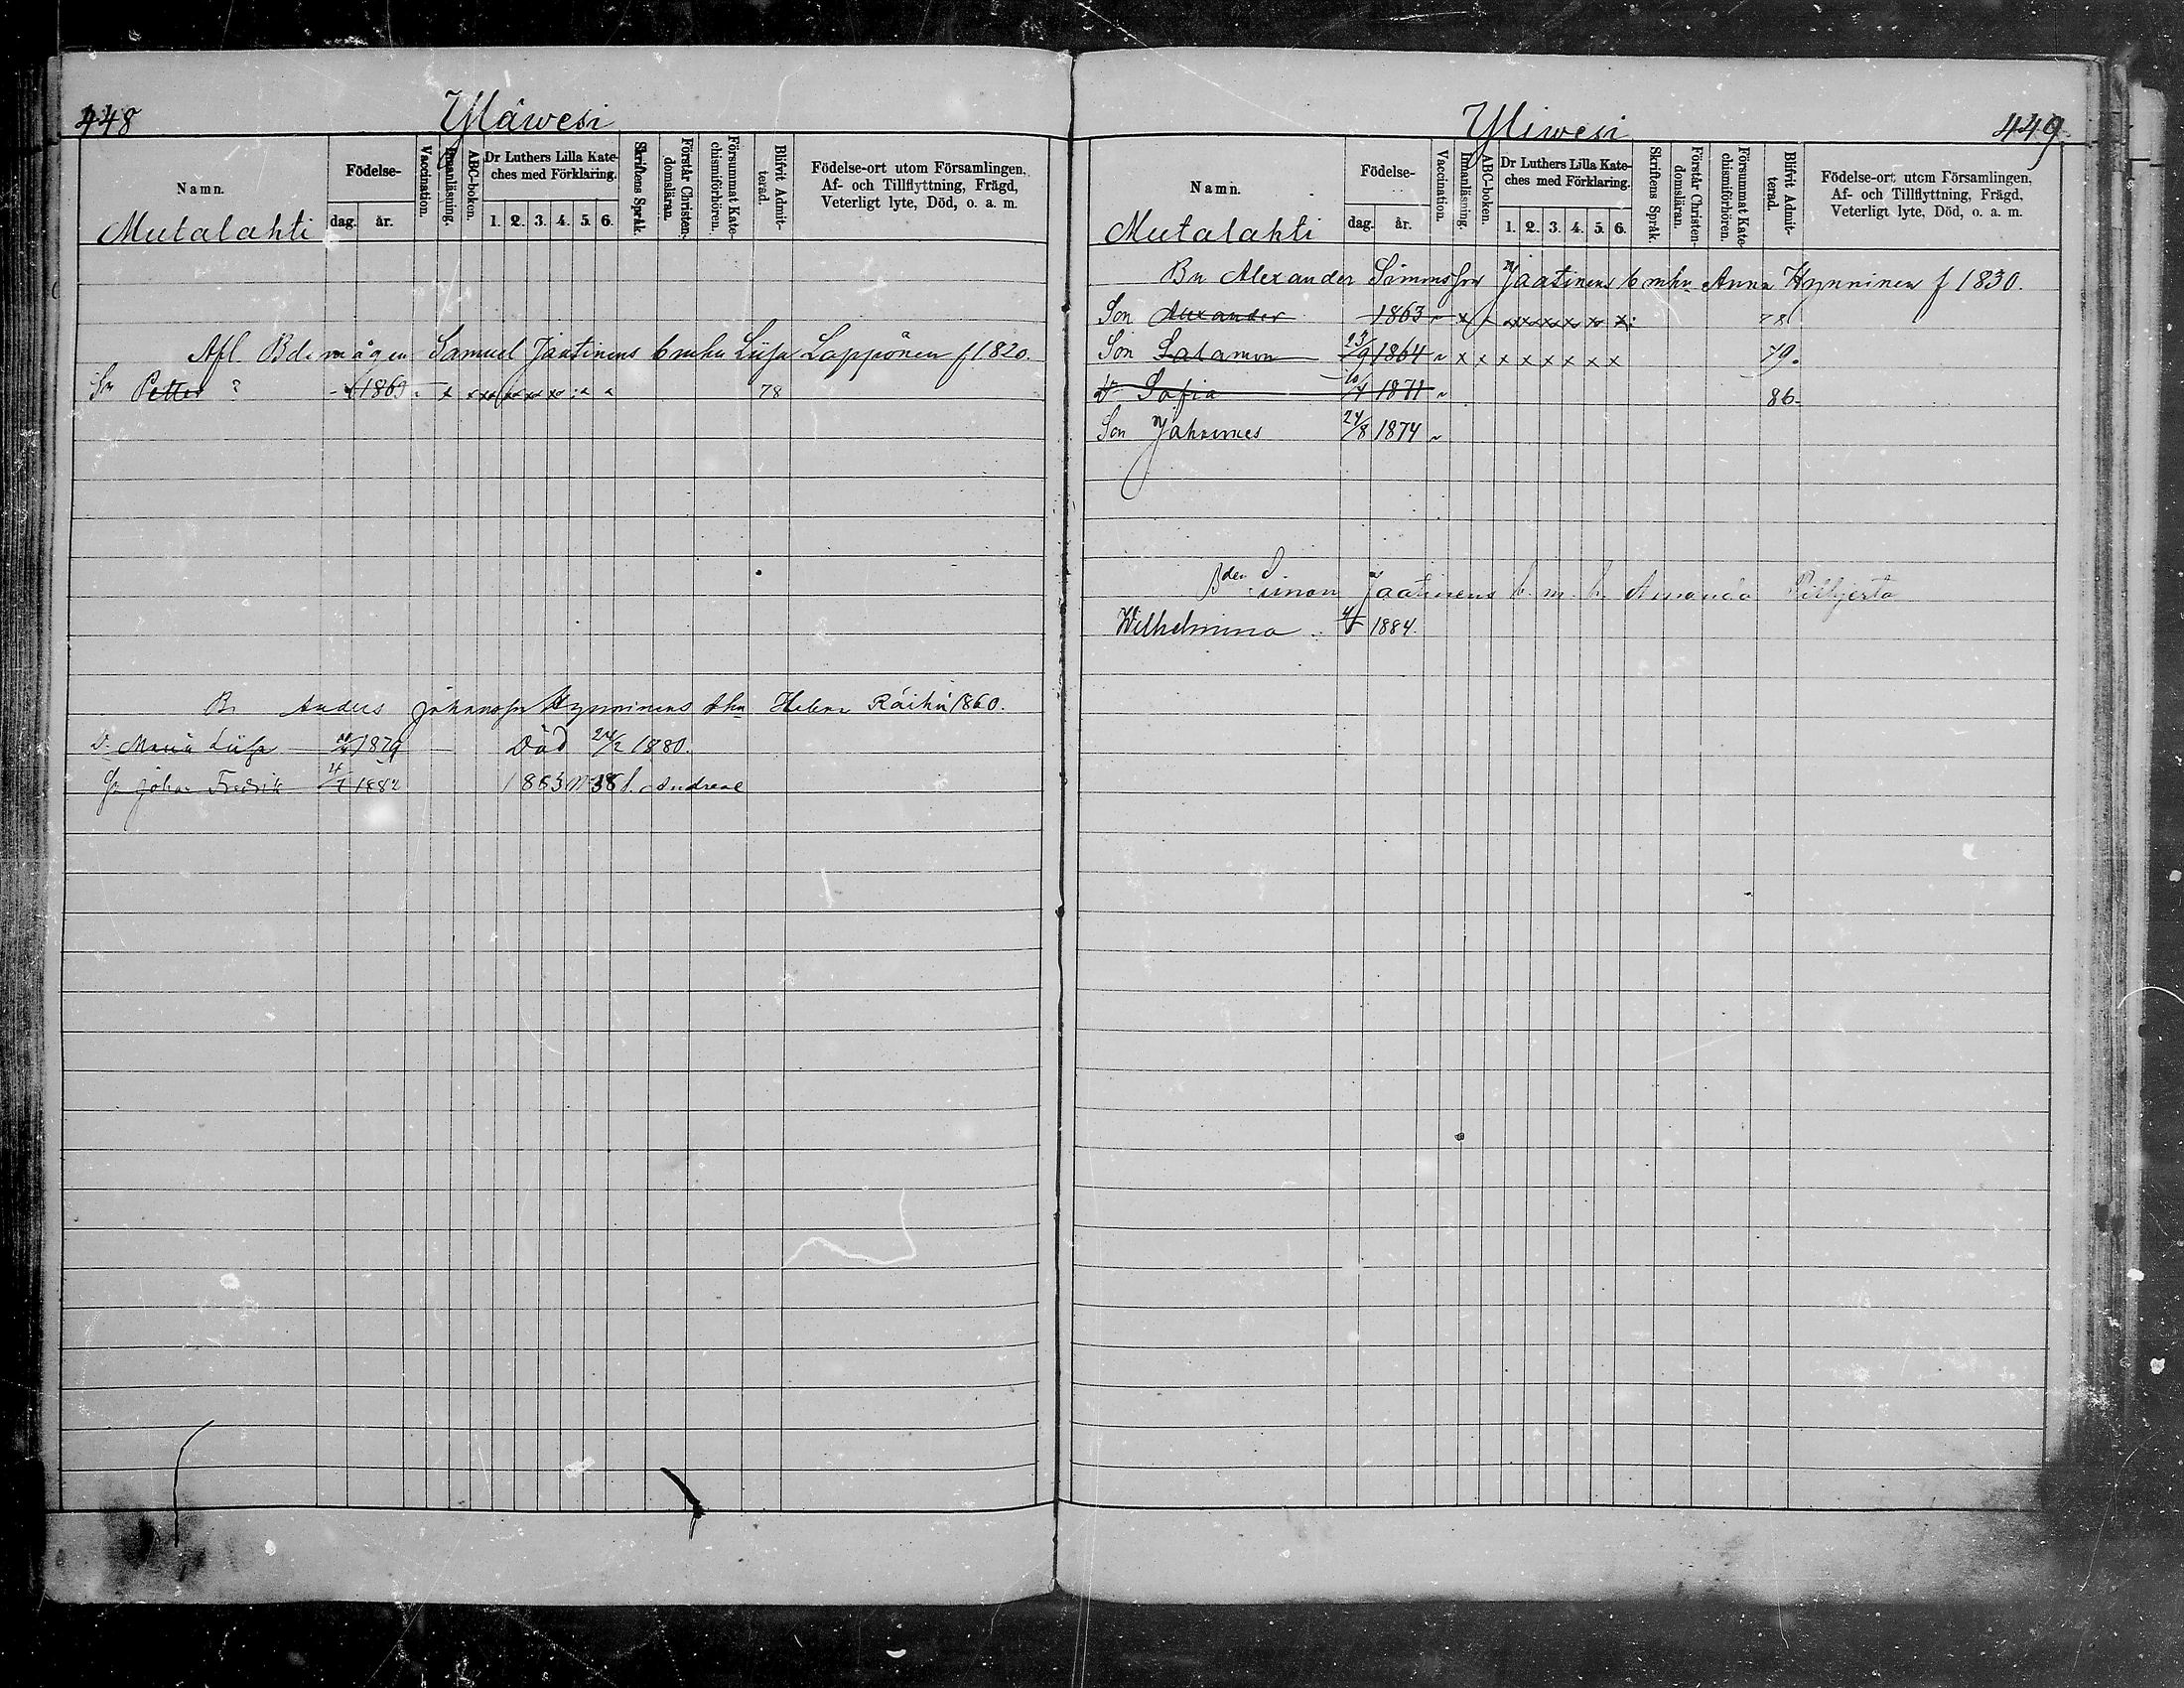 448
Yläwesi
Namn.
Mutalahti
Födelse-
dag.
år.
Vaccination.
Innanläsning.
ABC-boken.
Dr Luthers Lilla Kate-
ches med Förklaring.
1. 2. 3. 4. 5. 6.
Skriftens Språk.
Förstår Christen-
domsläran.
Försummat Kate-
chismiförhören.
Blifvit Admit-
terad.
Födelse-ort utom Församlingen,
Af- och Tillflyttning, Frägd,
Veterligt lyte, Död, o. a. m.
Afl. Bde mågen Samuel Jaatinens Liisa Lappönen f 1820.
Sn Petter 1863 78
Anders Johansson Hynninens Helena Räihä 1860.
D. Maria Liisa 1879 Död 24/2 1880.
Sn Johan Fredrik 1882 1883 Andreae
Yliwesi
449
Namn.
Mutalahti
Födelse-
dag.
år.
Vaccination.
Innanläsning.
ABC-boken.
Dr Luthers Lilla Kate-
ches med Förklaring.
1. 2. 3. 4. 5. 6.
Skriftens Språk.
Förstår Christen-
domsläran.
Försummat Kate-
chismiförhören.
Blifvit Admit-
terad.
Födelse-ort utom Församlingen,
Af- och Tillflyttning, Frägd,
Veterligt lyte, Död, o. a. m.
Bn Alexander Simonsson Jaatinens Anna Hynninen f 1830.
Son Alexander 1863 x 78
Son Salamon 23/9 1864 x x x x x x x x 79.
Dr Sofia 1871 86
Son Johannes 24/8 1874
Bden Simon Jaatinens h. m. h. Amanda
Wilhelmina 1884.